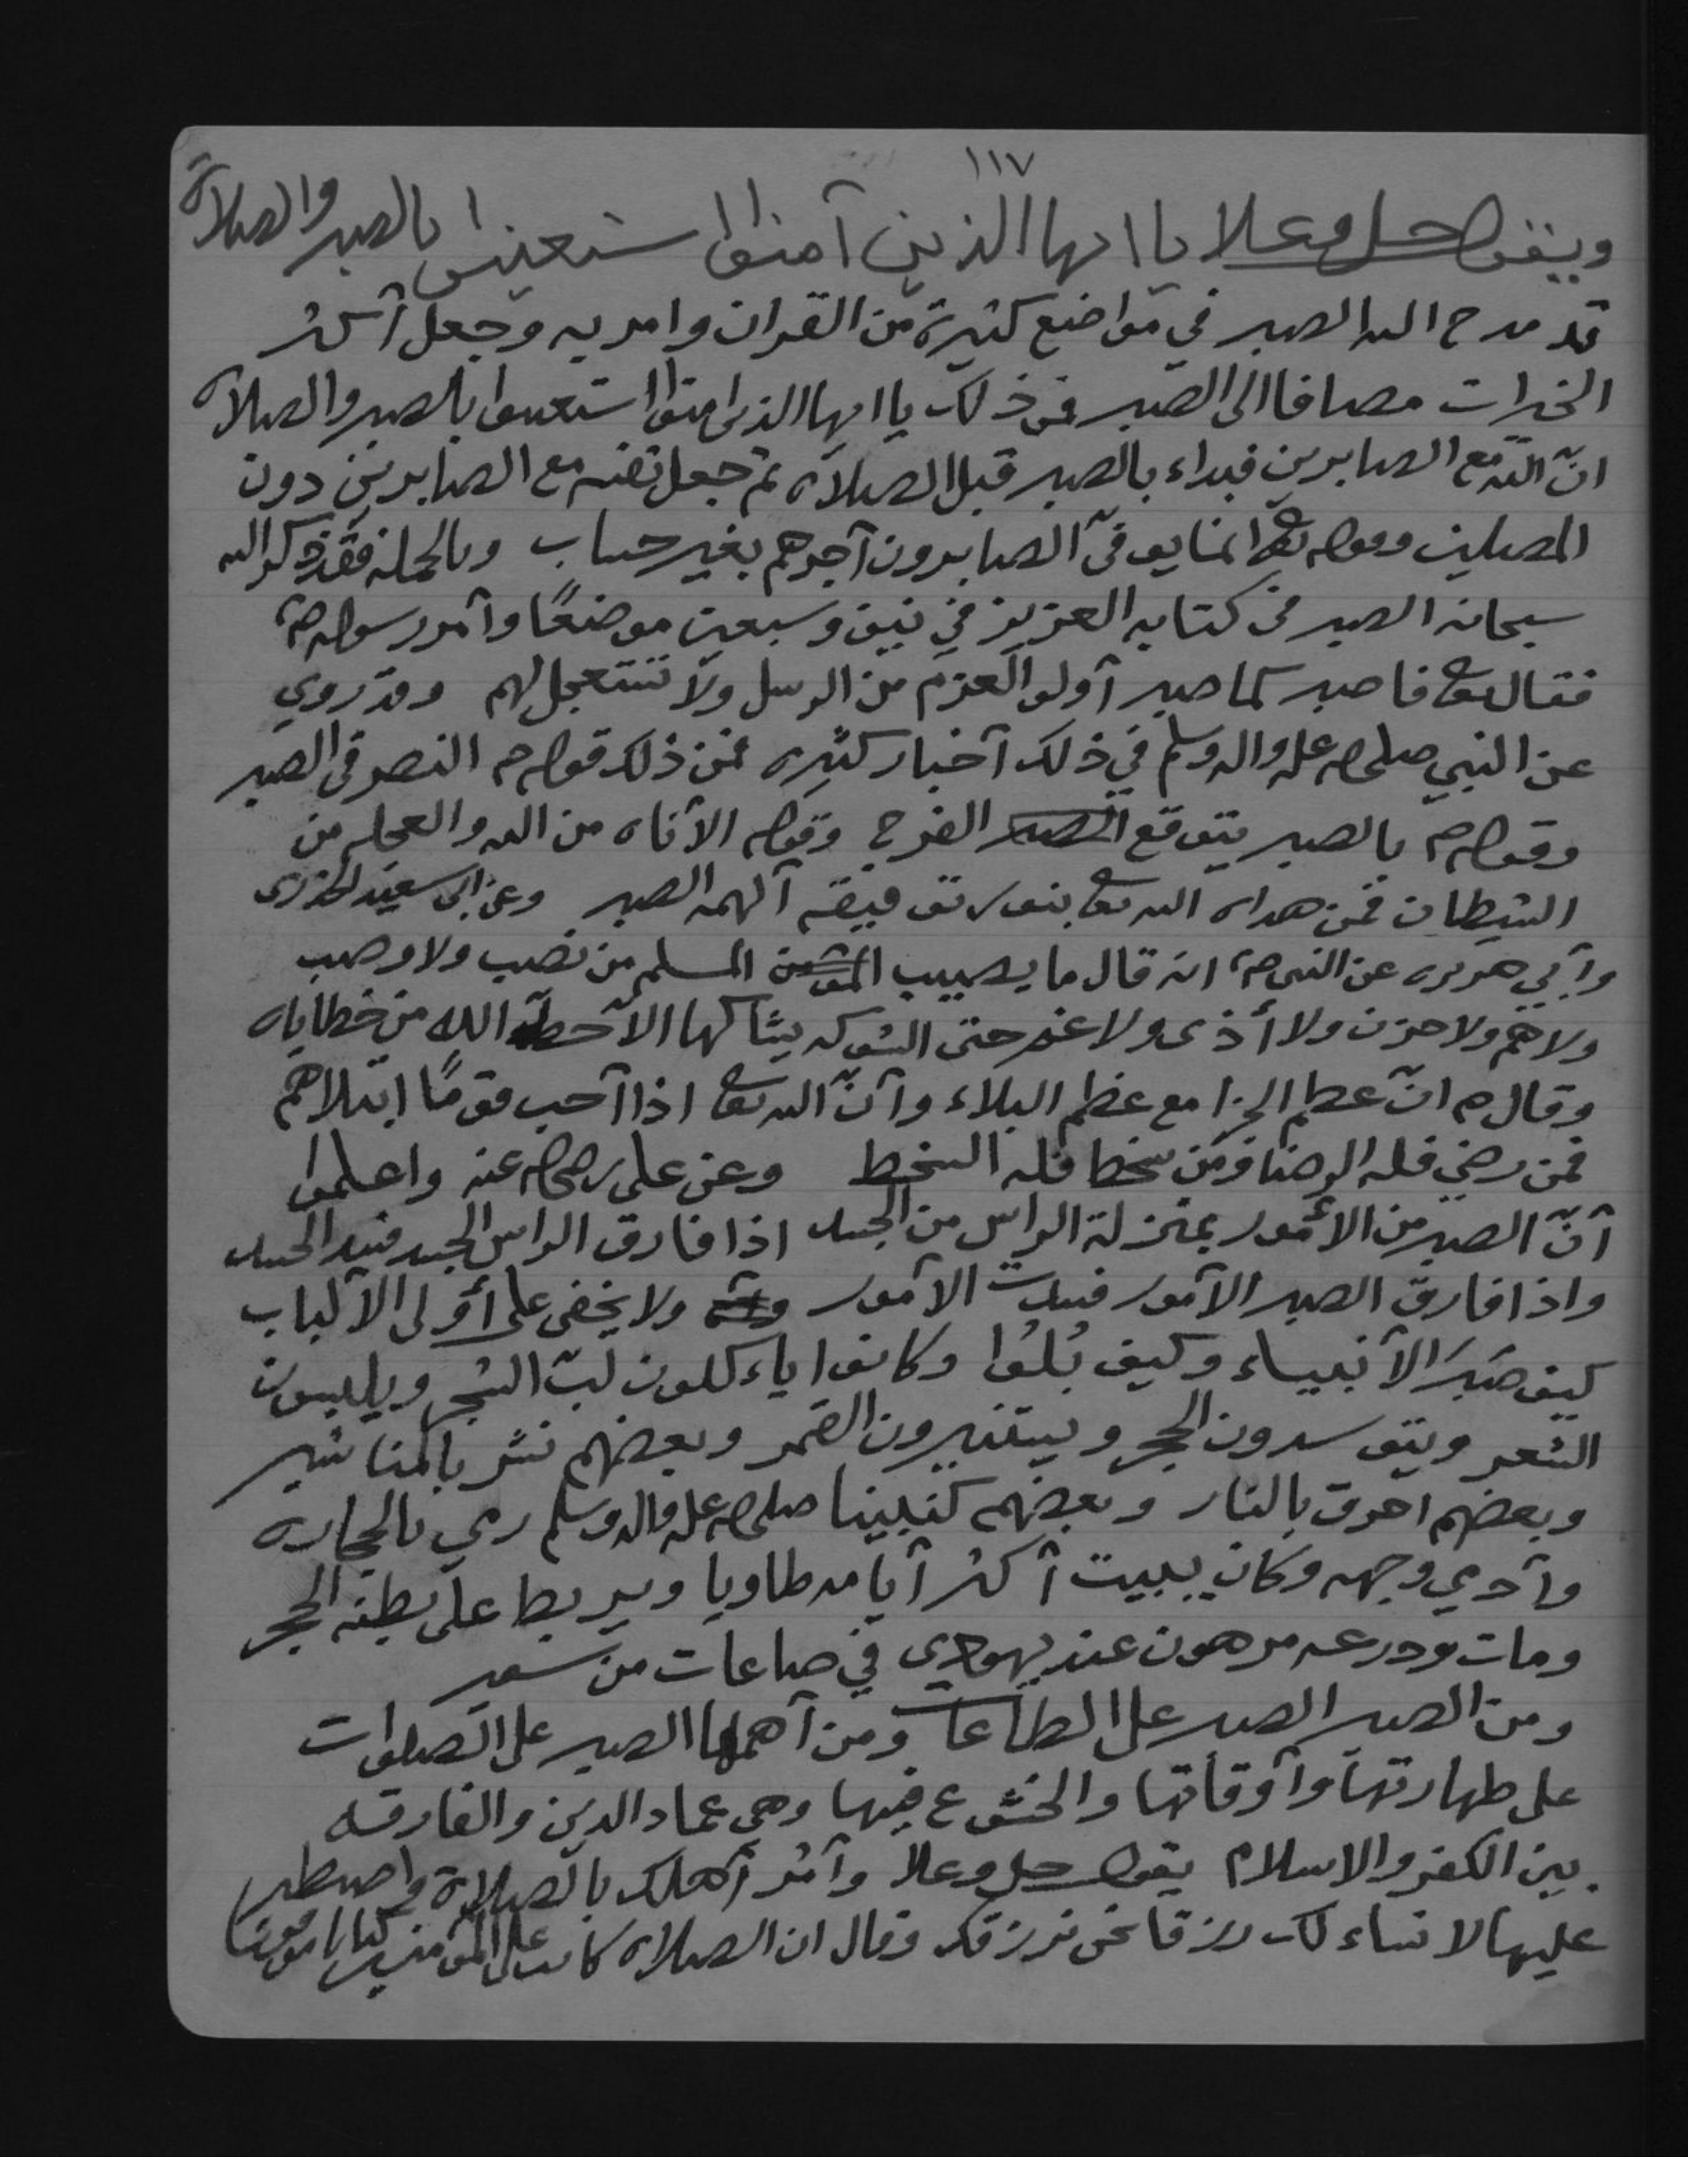 ١١٧
ويقول جل وعلا يا ايها الذين آمنوا استعينوا بالصبر والصلاة
قد مدح الله الصبر في مواضع كثيرة من القران وامر به وجعل أكثر
الخيرات مضافا الى الصبر فمن ذلك يا ايها الذين امنوا استعينوا بالصبر والصلاة
انّ الله مع الصابرين فبداء بالصبر قبل الصلاة ثم جعل نفسه مع الصابرين دون
المصلين وقوله تعالى انما يوفىّ الصابرون أجرهم بغير حساب وبالجملة فقد ذكر الله
سبحانه الصبر في كتابه العزيز في نيف وسبعين موضعًا وأمر رسوله صم
فقال تعالى فاصبر كما صبر أولو العزم من الرسل ولا تستعجل لهم وقد روي
عن النبي صلى الله عليه واله وسلم في ذلك أخبار كثيره فمن ذلك قوله م النصر في الصبر
وقوله م بالصبر يتوقع الفرج وقوله الأناه من الله والعجله من
الشيطان فمن هداه الله تعالى بنور توفيقه ألهمه الصبر وعن ابى سعيد الخدرى
وأبي هريره عن النبى صم انه قال ما يصيب المسلم من نصب ولا وصب
ولا همّ ولا حزن ولا أذى ولا غم حتى الشوكه يشاكها الاّ حطّ الله من خطاياه
وقال م انّ عظم الجزا مع عظم البلاء وأنّ الله تعالى اذا أحب قومًا ابتلاهم
فمن رضي فله الرضا ومن سخط فله السخط وعن على رضي الله عنه واعلموا
أنّ الصبر من الأمور بمنزلة الراس من الجسد اذا فارق الراس الجسد فسد الجسد
واذا فارق الصبر الأمور فسدت الأمور ولا يخفى على أولى الألباب
كيف صَبَرَ الأنبياء وكيف بُلُوا وكانوا ياءكلون لبّ الشجر ويلبسون
الشعر ويتوسدون الحجر ويستنيرون القمر وبعضهم نشر بالمناشير
وبعضهم احرق بالنار وبعضهم كنبينا صلى الله عليه واله وسلم رمي بالحجاره
وأدمي وجهه وكان يبيت أكثر أيامه طاويا ويربط على بطنه الحجر
ومات ودرعه مرهون عند يهودي في صاعات من شعير
ومن الصبر الصبر على الطاعات ومن أهمها الصبر على الصلوات
على طهارتها وأوقاتها والخشوع فيها وهي عماد الدين والفارقه
بين الكفر والاسلام يقول جل وعلا وأمُر أهلك بالصلاة واصطبر
عليها لا نساء لك رزقا نحن نرزقك وقال ان الصلاه كانت على المؤمنين كتابا موقوتا